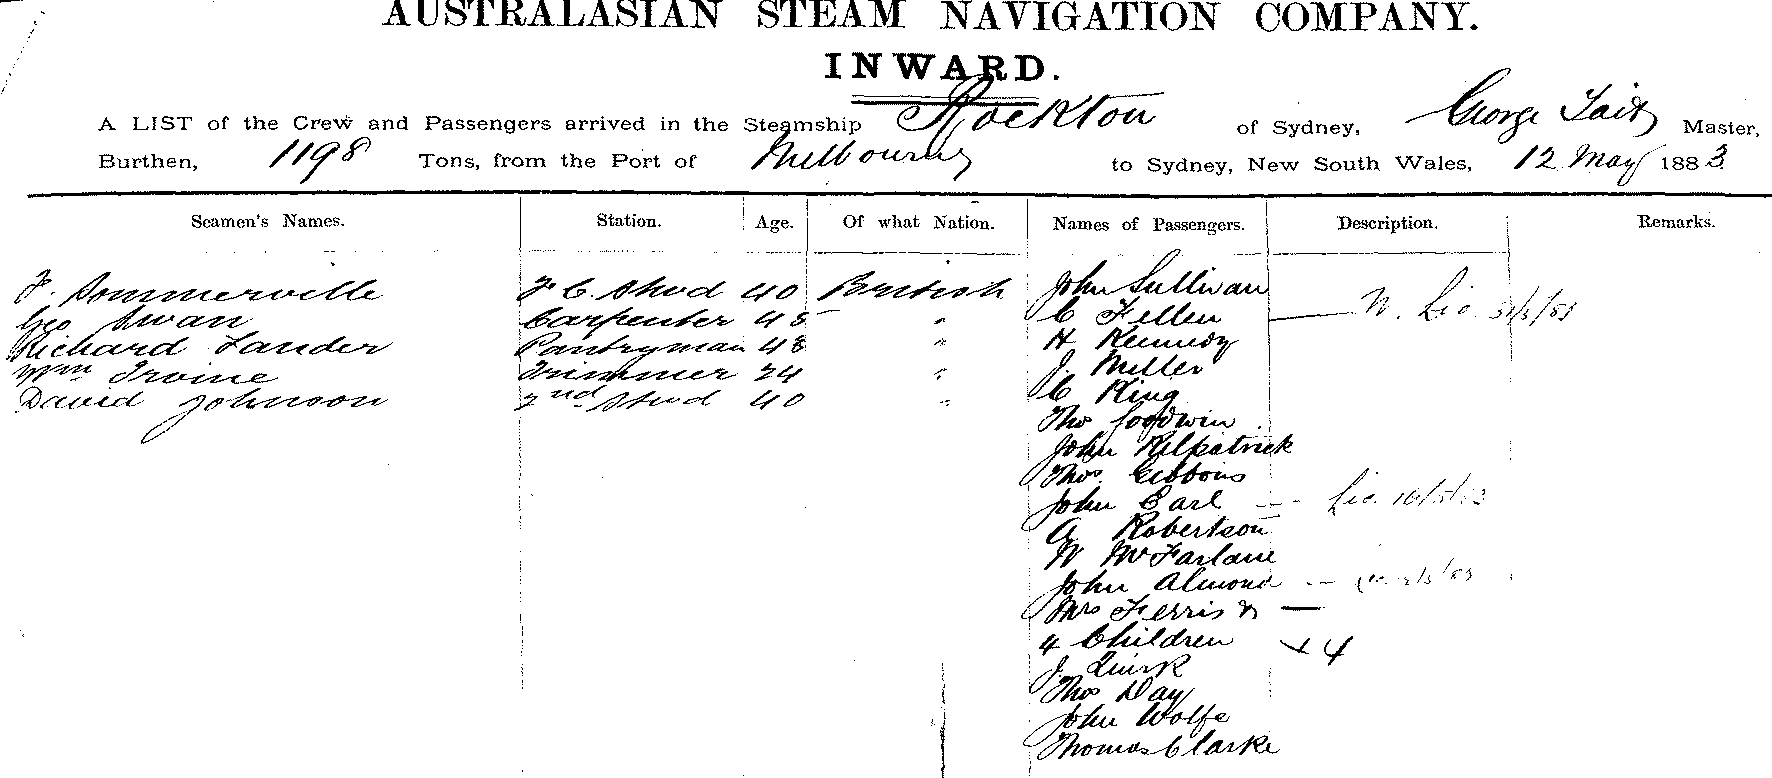 AUSTRALASIAN STEAM NAVIGATION COMPANY.
INWARD.
A LIST of the Crew and Passengers arrived in the Steamship Rockton of Sydney, George Tait Master,
Burthen, 1198 Tons, from the Port of Melbourne to Sydney, New South Wales, 12 May 1883
Seamen's Names. Station. Age. Of what Nation. Names of Passengers. Description. Remarks.
F. Sommerville F C Stwd 40 British John Sullivan
Geo Swan Carpenter 45 " C Fellen
Richard Lander Pantryman 43 " H Kennedy
Wm Irvine Trimmer 24 " J. Miller
David Johnson 2nd Stwd 40 " C King
Thos Goodwin
John Kilpatrick
Thos. Gibbons
John Earl — Lic.
A Robertson
W McFarlane
John Almond —
Mrs Ferris & —
4 Children + 4
J. Quirk
Thos Day
John Wolfe
Thomas Clarke